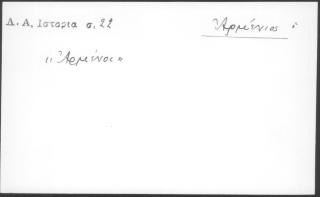 Δ. Α. Ιστορία σ. 22
Ἀρμένιος
"Ἀρμένοι"